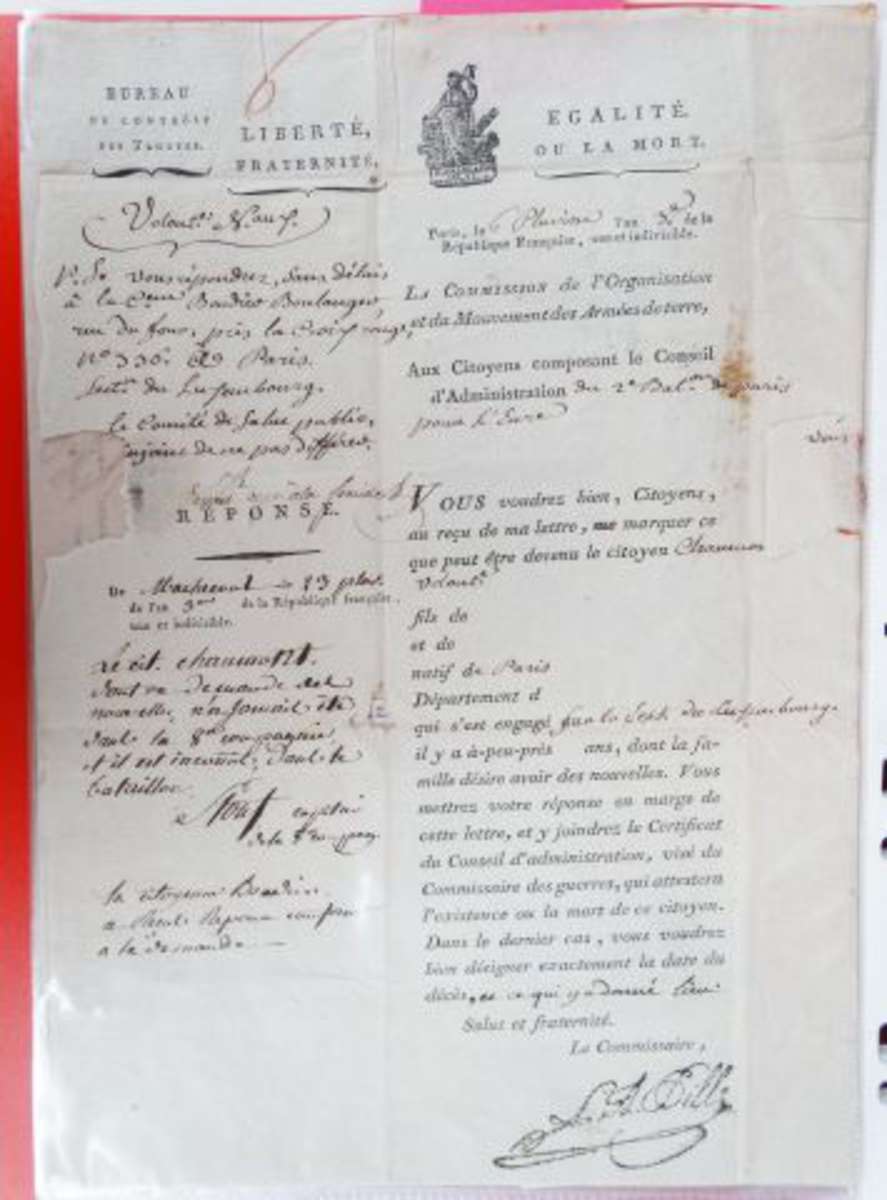 BUREAU
DE CONTRÔLE
DES TROUPES.
LIBERTÉ,
FRATERNITÉ,
EGALITÉ.
OU LA MORT.
Paris, le Pluviose l'an 3e de la
République Française, une et indivisible.
P.S. Vous répondrez, sans délais
à la Cenne Baudier Boulanger,
rue du four, près la Croix rouge,
No 330. à Paris.
Section du Luxembourg.
le Comité de Salut public,
enjoint de ne pas différer.
RÉPONSE.
De le 23 pluv.
de l'an 3me de la République française,
une et indivisible.
Le cit. chaumont.
dont on demande des
nouvelles n'a jamais été
dans la 8me compagnie
et il est inconnu dans le
bataillon
capitaine
de la 8e compag
la citoyenne Baudier
a
a la demande
La Commission de l'Organisation
et du Mouvement des Armées de terre,
Aux Citoyens composant le Conseil
d'Administration du 2e Baton de paris
pour l'Eure
Vous
VOUS voudrez bien, Citoyens,
au reçu de ma lettre, me marquer ce
que peut être devenu le citoyen
volont.
fils de
et de
natif de Paris
Département d
qui s'est engagé sur la Sect. du Luxembourg.
il y a à-peu-près ans, dont la fa-
mille désire avoir des nouvelles. Vous
mettrez votre réponse en marge de
cette lettre, et y joindrez le Certificat
du Conseil d'administration, visé du
Commissaire des guerres, qui attestera
l'existence ou la mort de ce citoyen.
Dans le dernier cas, vous voudrez
bien désigner exactement la date du
décès, et ce qui y a donné lieu
Salut et fraternité.
Le Commissaire,
L. A. Pille